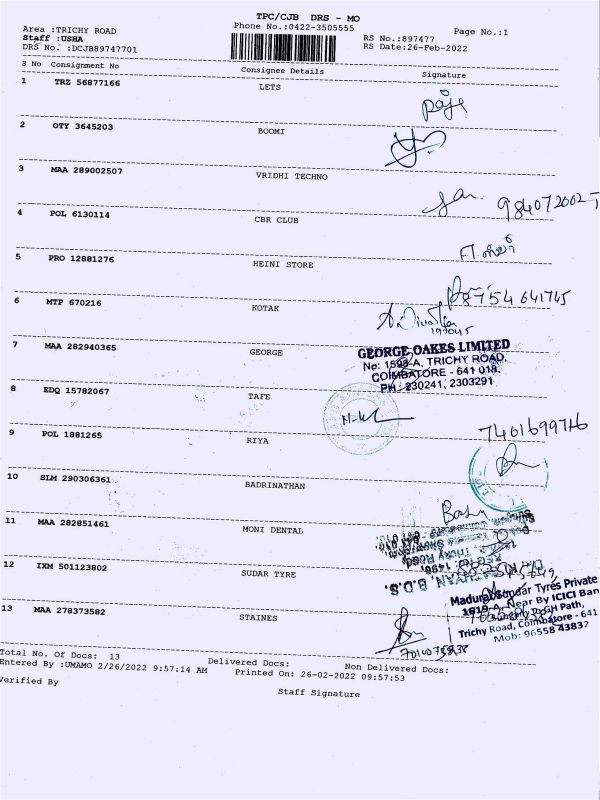 TPC/CJB DRS - MO
Area :TRICHY ROAD
Phone No.:0422-3505555
Page No.:1
Staff :USHA
RS No.:897477
DRS No. :DCJB89747701
RS Date:26-Feb-2022
S No Consignment No Consignee Details Signature
1 TRZ 56877166 LETS
2 OTY 3645203 BOOMI
3 MAA 289002507 VRIDHI TECHNO
4 POL 6130114 CBR CLUB
5 PRO 12881276 HEINI STORE
8754 641745
6 MTP 670216 KOTAK
7 MAA 282940365 GEORGE
GEORGE OAKES LIMITED
No: 1598-A, TRICHY ROAD,
COIMBATORE - 641 018.
PH : 230241, 2303291
8 EDQ 15782067 TAFE
9 POL 1881265 RIYA
10 SLM 290306361 BADRINATHAN
11 MAA 282851461 MONI DENTAL
12 IXM 501123802 SUDAR TYRE
Madura Sundar Tyres Private
1619-A, Near By ICICI Ban
Path,
Trichy Road, Coimbatore - 641
Mob: 96558 43837
13 MAA 278373582 STAINES
Total No. Of Docs: 13 Delivered Docs: Non Delivered Docs:
Entered By :UMAMO 2/26/2022 9:57:14 AM Printed On: 26-02-2022 09:57:53
Verified By Staff Signature